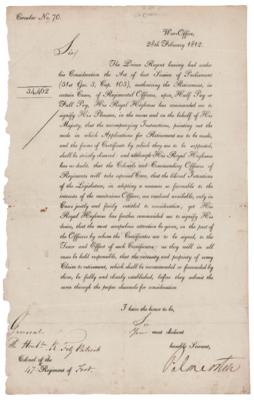 Circular No. 70.
War-Office,
28th February 1812.
Sir,
The Prince Regent having had under
his Consideration the Act of last Session of Parliament
(51st Geo. 3, Cap. 103), authorizing the Retirement, in
certain Cases, of Regimental Officers, upon Half Pay or
Full Pay, His Royal Highness has commanded me to
signify His Pleasure, in the name and on the behalf of His
Majesty, that the accompanying Instructions, pointing out the
mode in which Applications for Retirement are to be made,
and the form of Certificate by which they are to be supported,
shall be strictly observed: and although His Royal Highness
has no doubt, that the Colonels and Commanding Officers of
Regiments will take especial Care, that the liberal Intention
of the Legislature, in adopting a measure so favorable to the
interests of the meritorious Officer, be rendered available, only in
Cases justly and fairly entitled to consideration, yet His
Royal Highness has further commanded me to signify His
desire, that the most scrupulous attention be given, on the part
of Officers by whom the Certificates are to be signed, to the
Tenor and Effect of such Certificates; as they will in all
cases be held responsible, that the necessity and propriety of every
Claim to retirement, which shall be recommended or forwarded by
them, be fully and clearly established, before they submit the
same through the proper channels for consideration.
34,402
I have the honor to be,
Sir,
Your most obedient
humble Servant,
Palmerston
General
The Honble
Fitz Patrick
Colonel of the
47 Regiment of Foot